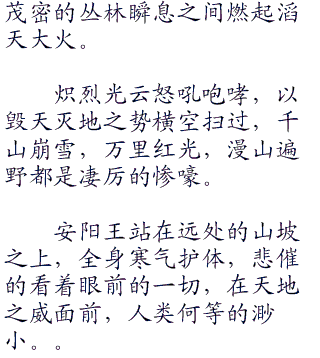 茂密的丛林瞬息之间燃起滔
天大火。
炽烈光云怒吼咆哮，以
毁天灭地之势横空扫过，千
山崩雪，万里红光，漫山遍
野都是凄厉的惨嚎。
安阳王站在远处的山坡
之上，全身寒气护体，悲催
的看着眼前的一切，在天地
之威面前，人类何等的渺
小。。